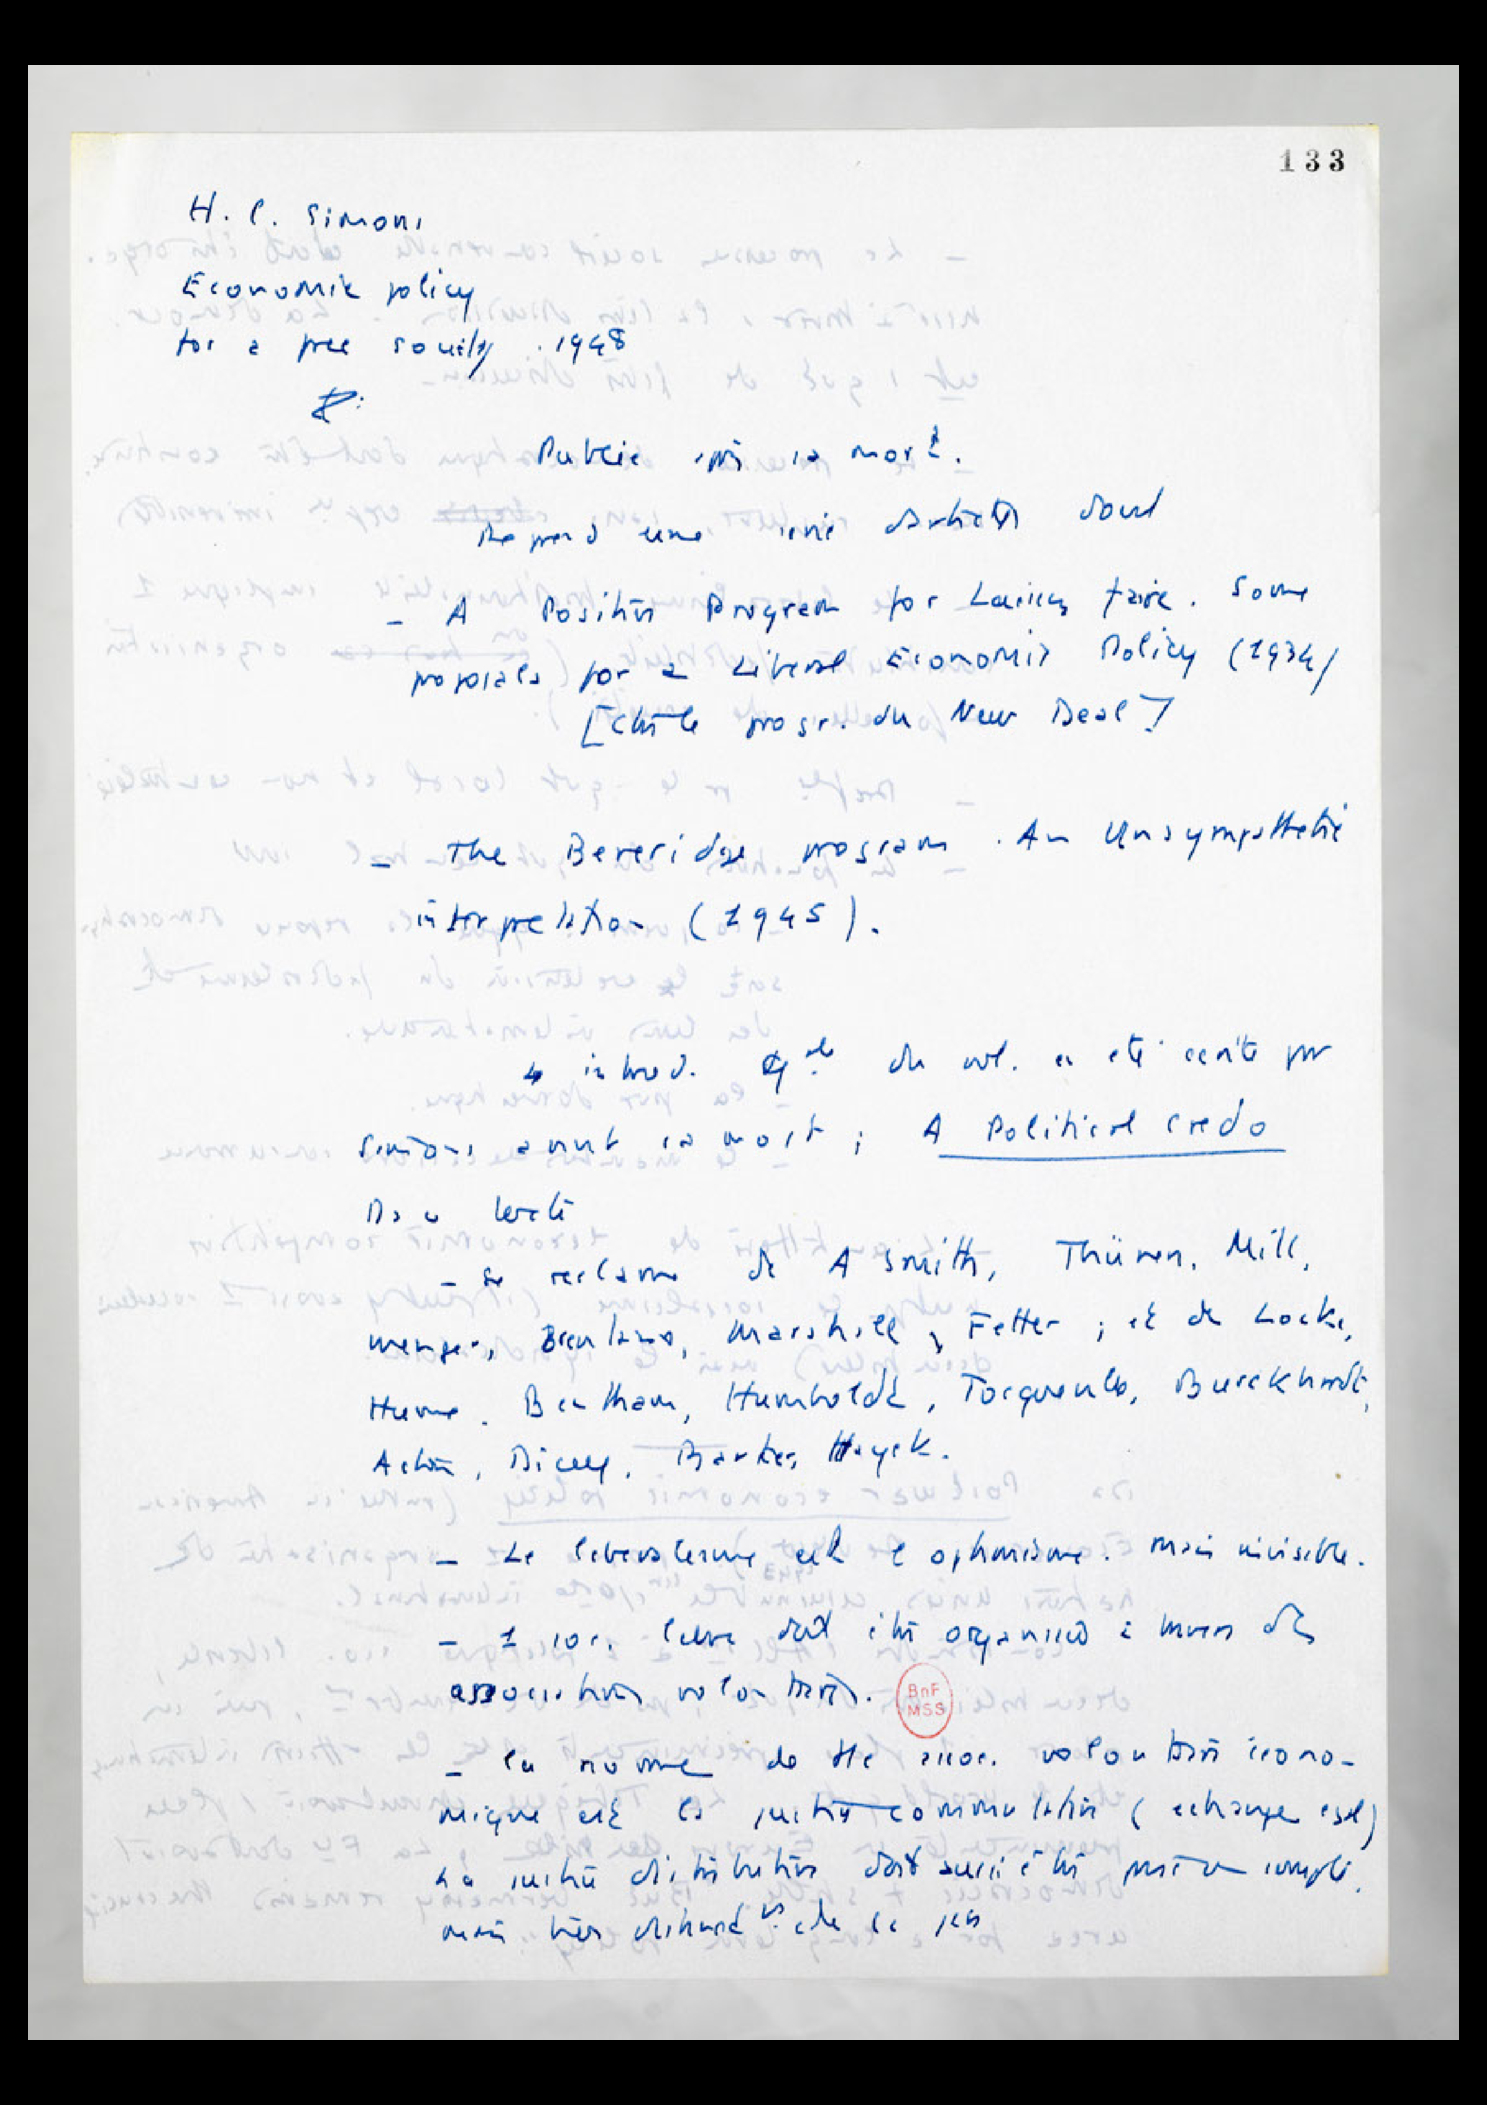 133
H. C. Simons
Economic policy
for a free society . 1948
Publié aps sa mort.
Reprend une série d'articles dont
- A Positive Program for Laissez faire. Some
proposals for a Liberal Economic Policy (1934)
[Ctre le progr. du New Deal]
- The Beveridge program . An Unsympathetic
interpretation (1945).
introd. gale du vol. a été écrite par
Simons avant sa mort ; A Political credo
Ds ce texte
- se réclame de A Smith, Thünen, Mill,
Menger, Brentano, Marshall, Fetter ; et de Locke,
Hume, Bentham, Humboldt, Tocqueville, Burckhardt,
Acton, Dicey, Barker, Hayek.
- Le libéralisme est l'optimisme. Main invisible.
- 1 soc. libre doit être organisée à travers des
associations volontaires.
BnF
MSS
- la norme de tte assoc. volontaire écono-
mique est la justice commutative (échange égal)
La justice distributive doit aussi être prise en compte,
mais bien distinguée de la